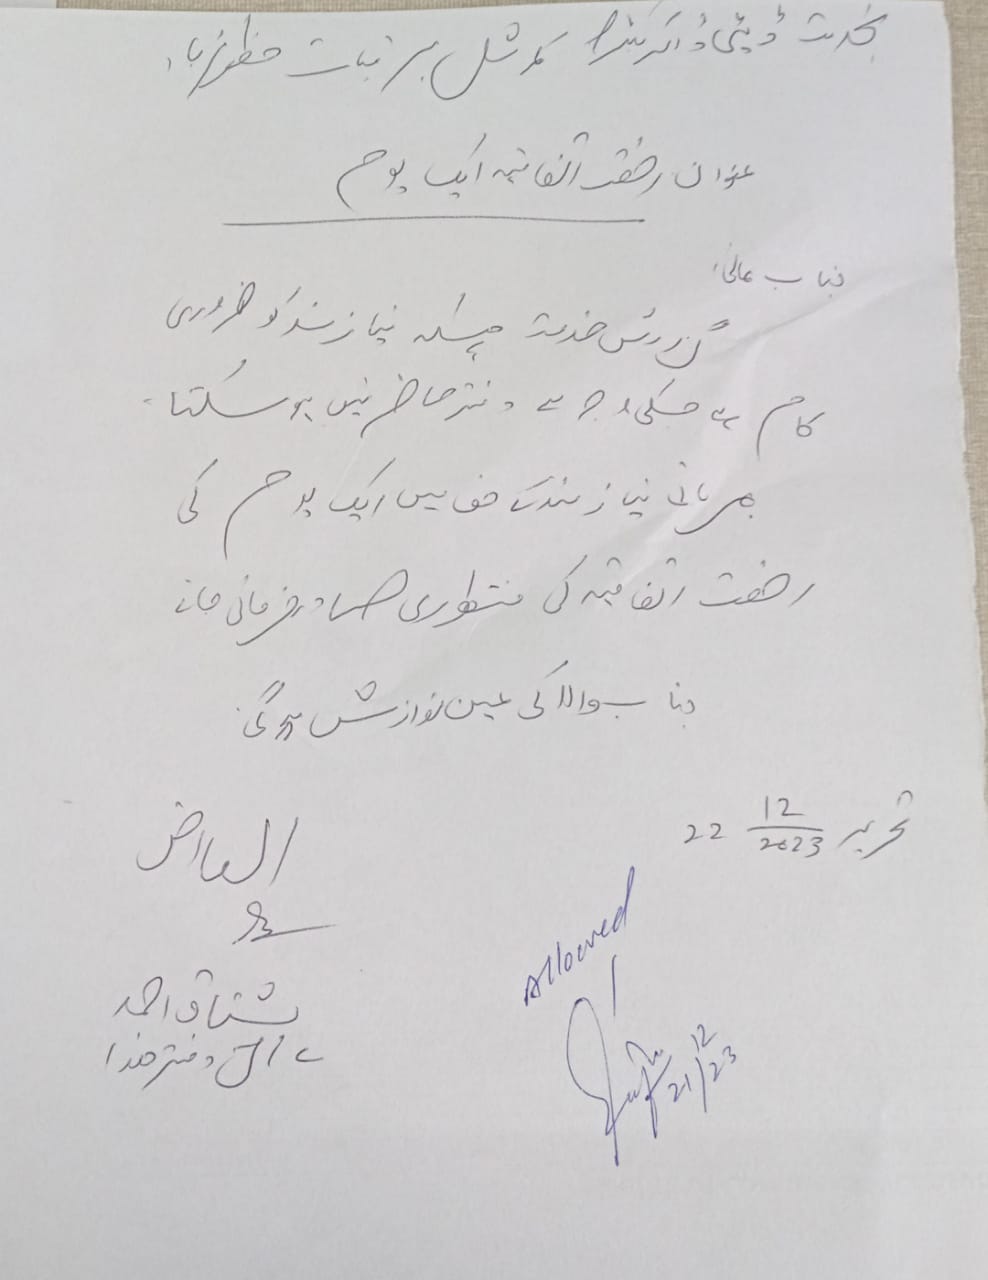 بخدمت ڈپٹی ڈائریکٹر کمرشل سبزیات مظفرآباد
عنوان رخصت اتفاقیہ ایک یوم
جناب عالی!
گزارش خدمت ہیکہ نیازمند کو ضروری
کام ہے جسکی وجہ سے دفتر حاضر نہیں ہو سکتا۔
مہربانی نیازمند کے حق میں ایک یوم کی
رخصت اتفاقیہ کی منظوری صادر فرمائی جائے
جناب والا کی عین نوازش ہوگی۔
تحریر 12/2023 22
العارض
مشتاق احمد
دفتر ھذا
Allowed
21/12/23